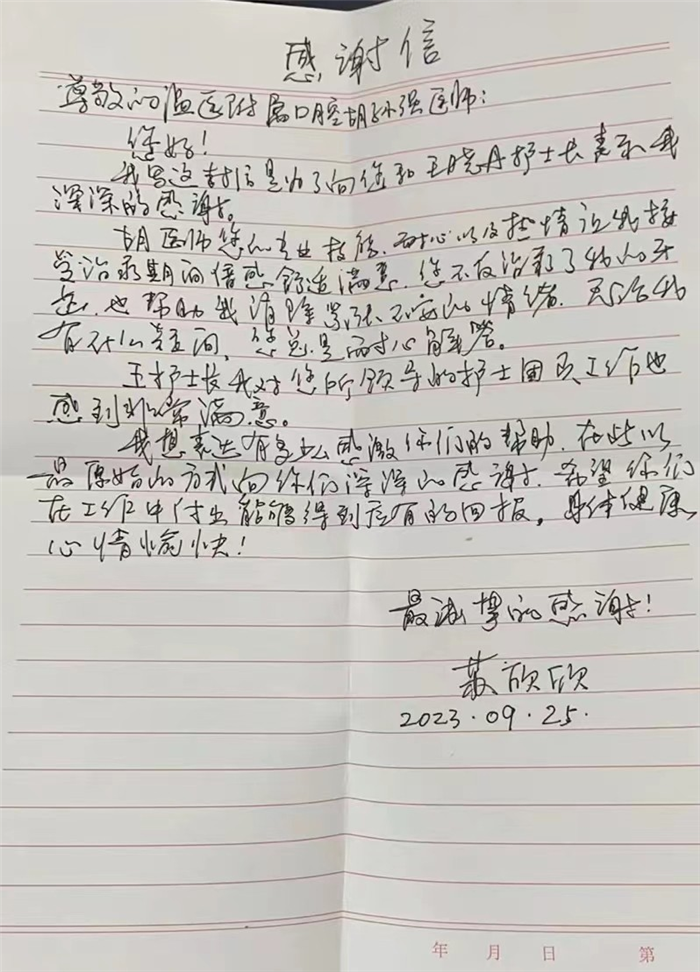 感谢信
尊敬的温医附属口腔胡孙强医师：
您好！
我写这封信是为了向您和王晓丹护士长表示我
深深的感谢。
胡医师您的专业技能、耐心以及热情让我接
受治疗期间倍感舒适满意，您不仅治彩了我的牙
齿，也帮助我消除紧张不安的情绪，无论我
有什么疑问，您总是耐心解答。
王护士长我对您所领导的护士团员工作也
感到非常满意。
我想表达有多么感激你们的帮助，在此以
最原始的方式向你们深深的感谢，希望你们
在工作中付出能够得到应有的回报，身体健康
心情愉快！
最诚挚的感谢！
欣欣
2023.09.25.
年 月 日 第